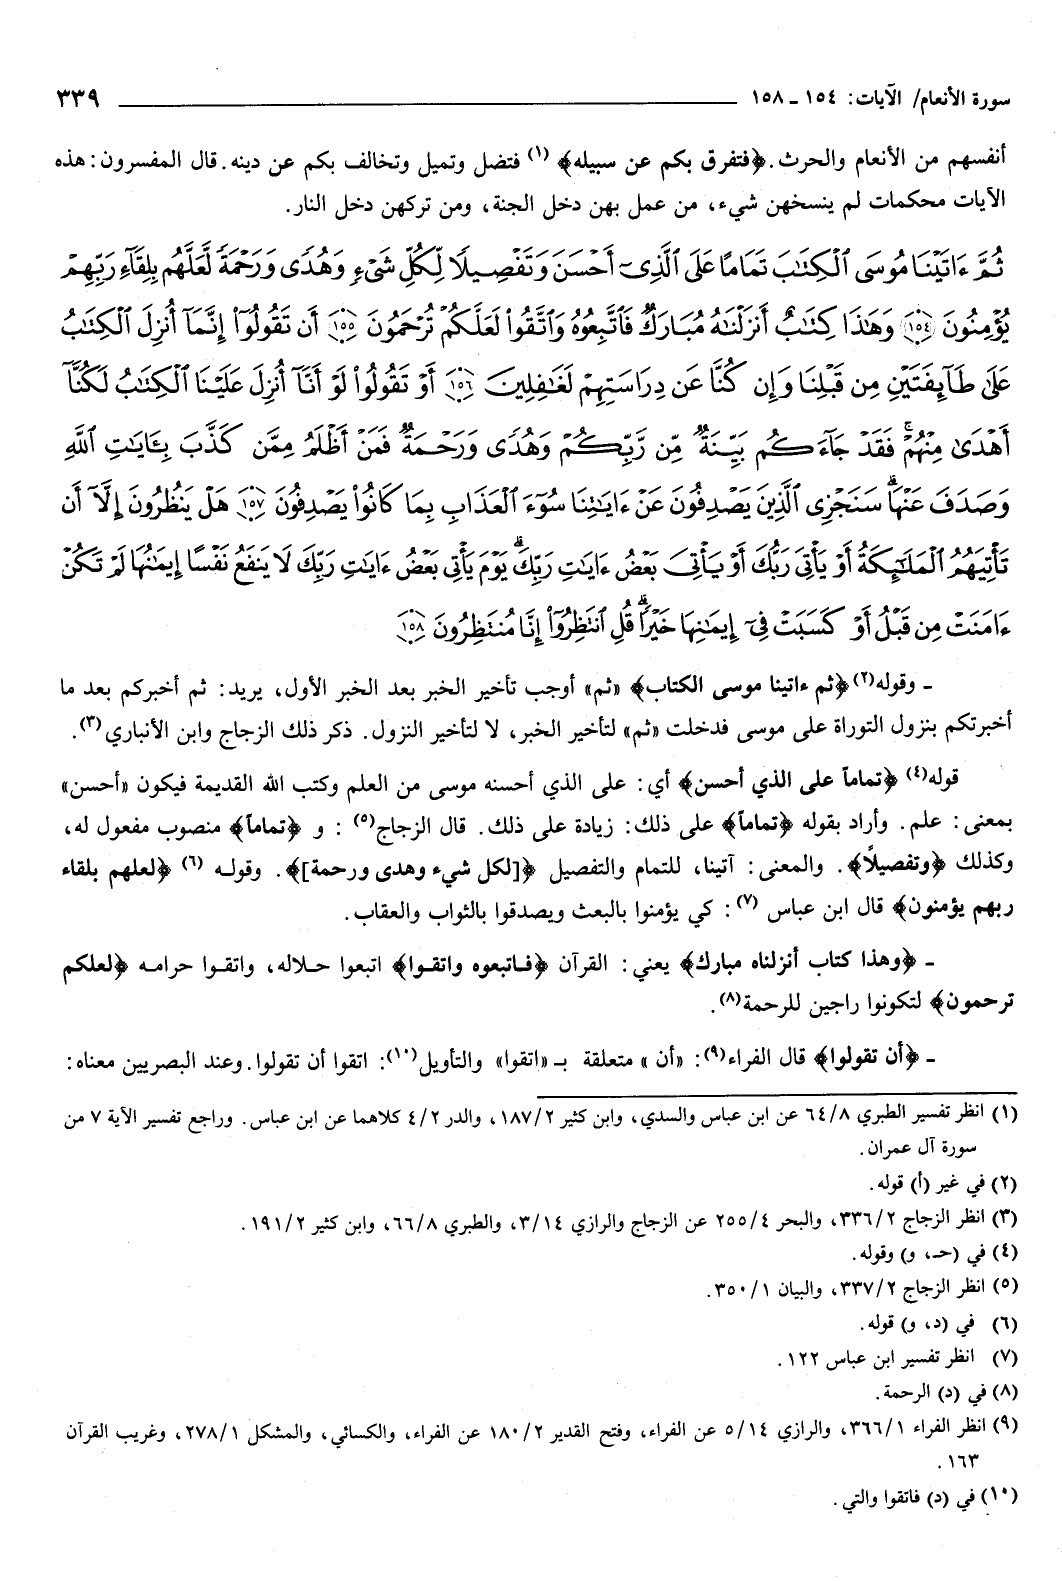 سورة الأنعام/ الآيات: ١٥٤ ـ ١٥٨ ٣٣٩
أنفسهم من الأنعام والحرث. ﴿فتفرق بكم عن سبيله﴾ (١) فتضل وتميل وتخالف بكم عن دينه. قال المفسرون: هذه
الآيات محكمات لم ينسخهن شيء، من عمل بهن دخل الجنة، ومن تركهن دخل النار.
ثُمَّ ءَاتَيْنَا مُوسَى ٱلْكِتَٰبَ تَمَامًا عَلَى ٱلَّذِىٓ أَحْسَنَ وَتَفْصِيلًا لِّكُلِّ شَىْءٍ وَهُدًى وَرَحْمَةً لَّعَلَّهُم بِلِقَآءِ رَبِّهِمْ
يُؤْمِنُونَ ١٥٤ وَهَٰذَا كِتَٰبٌ أَنزَلْنَٰهُ مُبَارَكٌ فَٱتَّبِعُوهُ وَٱتَّقُوا۟ لَعَلَّكُمْ تُرْحَمُونَ ١٥٥ أَن تَقُولُوٓا۟ إِنَّمَآ أُنزِلَ ٱلْكِتَٰبُ
عَلَىٰ طَآئِفَتَيْنِ مِن قَبْلِنَا وَإِن كُنَّا عَن دِرَاسَتِهِمْ لَغَٰفِلِينَ ١٥٦ أَوْ تَقُولُوا۟ لَوْ أَنَّآ أُنزِلَ عَلَيْنَا ٱلْكِتَٰبُ لَكُنَّآ
أَهْدَىٰ مِنْهُمْ ۚ فَقَدْ جَآءَكُم بَيِّنَةٌ مِّن رَّبِّكُمْ وَهُدًى وَرَحْمَةٌ ۚ فَمَنْ أَظْلَمُ مِمَّن كَذَّبَ بِـَٔايَٰتِ ٱللَّهِ
وَصَدَفَ عَنْهَا ۗ سَنَجْزِى ٱلَّذِينَ يَصْدِفُونَ عَنْ ءَايَٰتِنَا سُوٓءَ ٱلْعَذَابِ بِمَا كَانُوا۟ يَصْدِفُونَ ١٥٧ هَلْ يَنظُرُونَ إِلَّآ أَن
تَأْتِيَهُمُ ٱلْمَلَٰٓئِكَةُ أَوْ يَأْتِىَ رَبُّكَ أَوْ يَأْتِىَ بَعْضُ ءَايَٰتِ رَبِّكَ ۗ يَوْمَ يَأْتِى بَعْضُ ءَايَٰتِ رَبِّكَ لَا يَنفَعُ نَفْسًا إِيمَٰنُهَا لَمْ تَكُنْ
ءَامَنَتْ مِن قَبْلُ أَوْ كَسَبَتْ فِىٓ إِيمَٰنِهَا خَيْرًا ۗ قُلِ ٱنتَظِرُوٓا۟ إِنَّا مُنتَظِرُونَ ١٥٨
ـ وقوله(٢) ﴿ثم ءاتينا موسى الكتاب﴾ «ثم» أوجب تأخير الخبر بعد الخبر الأول، يريد: ثم أخبركم بعد ما
أخبرتكم بنزول التوراة على موسى فدخلت «ثم» لتأخير الخبر، لا لتأخير النزول. ذكر ذلك الزجاج وابن الأنباري (٣).
قوله(٤) ﴿تماماً على الذي أحسن﴾ أي: على الذي أحسنه موسى من العلم وكتب الله القديمة فيكون «أحسن»
بمعنى: علم. وأراد بقوله ﴿تماماً﴾ على ذلك: زيادة على ذلك. قال الزجاج(٥) : و ﴿تماماً﴾ منصوب مفعول له،
وكذلك ﴿وتفصيلاً﴾. والمعنى: آتينا، للتمام والتفصيل ﴿[لكل شيء وهدى ورحمة]﴾. وقوله (٦) ﴿لعلهم بلقاء
ربهم يؤمنون﴾ قال ابن عباس (٧) : كي يؤمنوا بالبعث ويصدقوا بالثواب والعقاب.
ـ ﴿وهذا كتاب أنزلناه مبارك﴾ يعني: القرآن ﴿فاتبعوه واتقوا﴾ اتبعوا حلاله، واتقوا حرامه ﴿لعلكم
ترحمون﴾ لتكونوا راجين للرحمة(٨).
ـ ﴿أن تقولوا﴾ قال الفراء(٩): «أن» متعلقة بـ «اتقوا» والتأويل(١٠): اتقوا أن تقولوا. وعند البصريين معناه:
(١) انظر تفسير الطبري ٦٤/٨ عن ابن عباس والسدي، وابن كثير ١٨٧/٢، والدر ٤/٢ كلاهما عن ابن عباس. وراجع تفسير الآية ٧ من
سورة آل عمران.
(٢) في غير (أ) قوله.
(٣) انظر الزجاج ٣٣٦/٢، والبحر ٢٥٥/٤ عن الزجاج والرازي ٣/١٤، والطبري ٦٦/٨، وابن كثير ١٩١/٢.
(٤) في (حـ، و) وقوله.
(٥) انظر الزجاج ٣٣٧/٢، والبيان ٣٥٠/١.
(٦) في (د، و) قوله.
(٧) انظر تفسير ابن عباس ١٢٢.
(٨) في (د) الرحمة.
(٩) انظر الفراء ٣٦٦/١، والرازي ٥/١٤ عن الفراء، وفتح القدير ١٨٠/٢ عن الفراء، والكسائي، والمشكل ٢٧٨/١، وغريب القرآن
١٦٣.
(١٠) في (د) فاتقوا والتي.